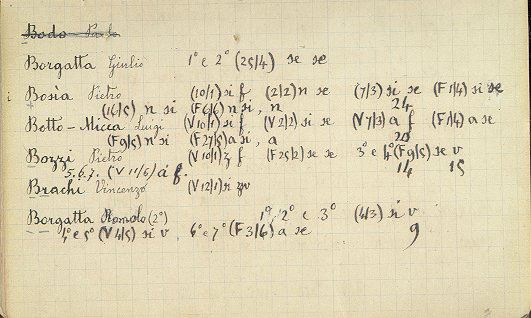 Bodo Paolo
Borgatta Giulio 1° e 2° (25/4) se se
Bosìa Pietro (10/1) si f (2/2) n se (7/3) si se (F1/4) si se
(16/5) n si (F6/6) n si, n 24
Botto-Micca Luigi (V10/1) si f (V2/2) si se (V7/3) a f (F1/4) a se
(F9/5) n si (F27/5) a si, a 20
Bozzi Pietro (V10/1) z f (F25/2) se se 3° e 4° (F9/5) se v
5.6.7. (V11/6) a f. 14 15
Brachi Vincenzo (V12/1) si zv
Borgatta Romolo (2°) 1°, 2° e 3° (4/3) si v
4° e 5° (V4/5) si v 6° e 7° (F3/6) a se 9